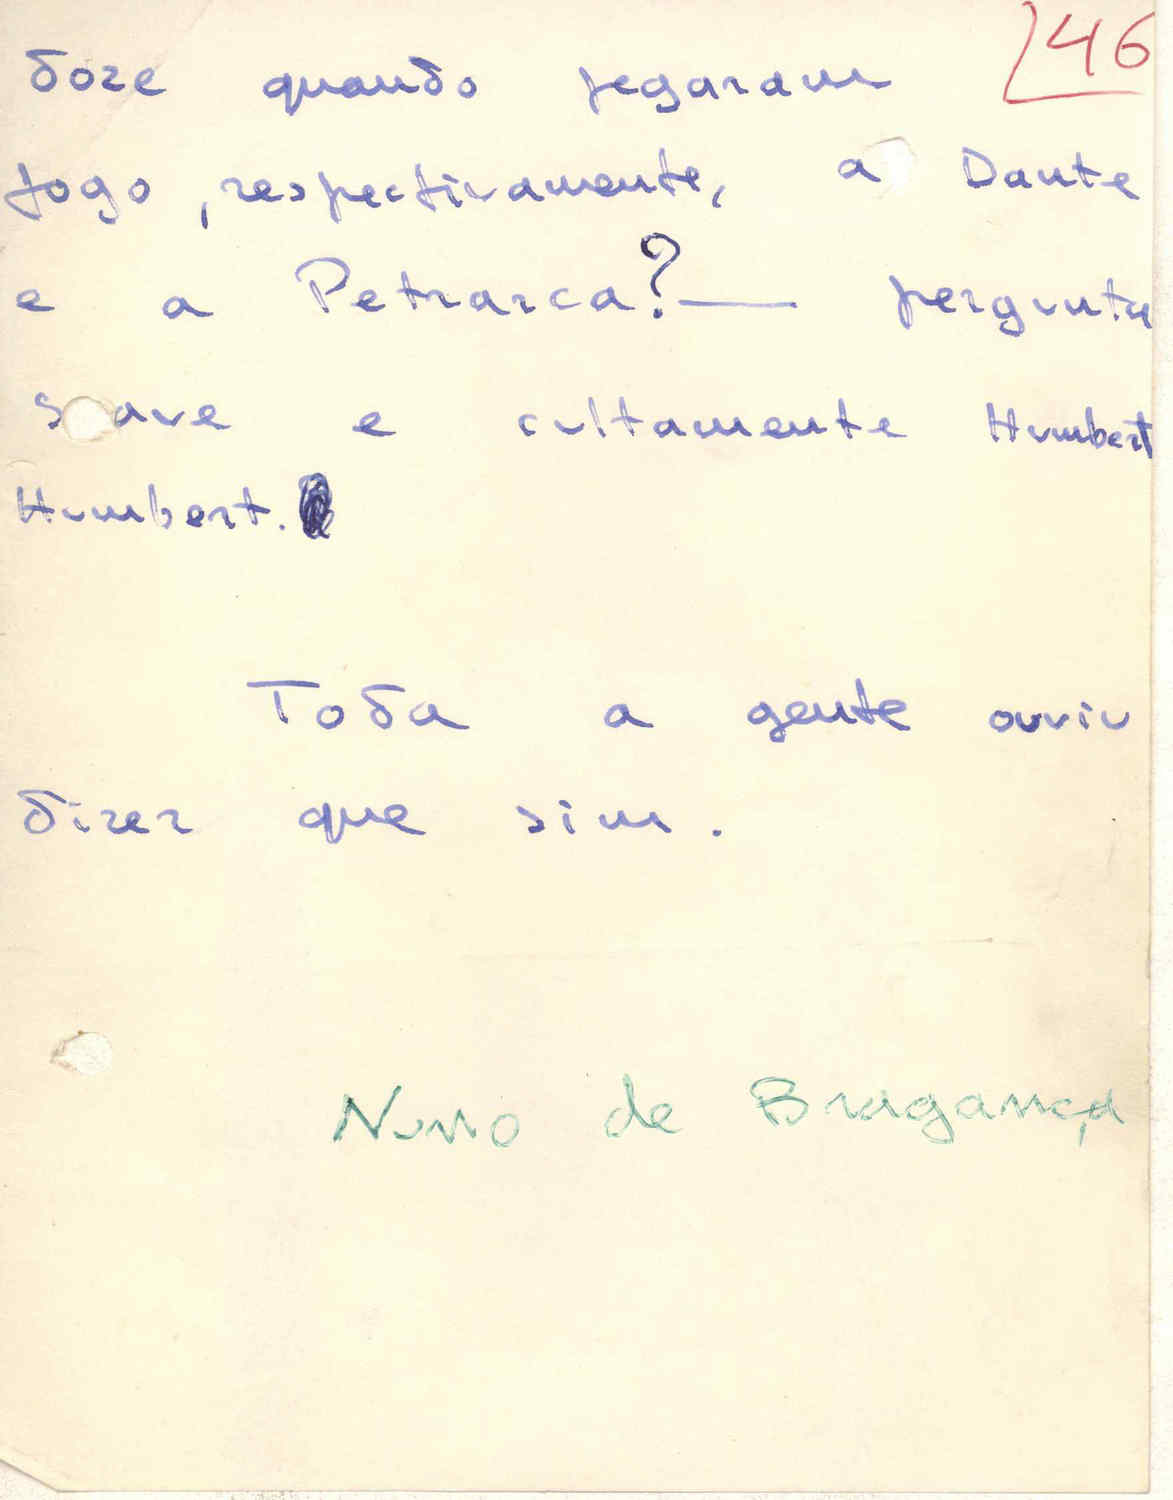 46
doze quando pegaram
fogo, respectivamente, a Dante
e a Petrarca? — pergunta
suave e cultamente Humbert
Humbert.
Toda a gente ouviu
dizer que sim.
Nuno de Bragança